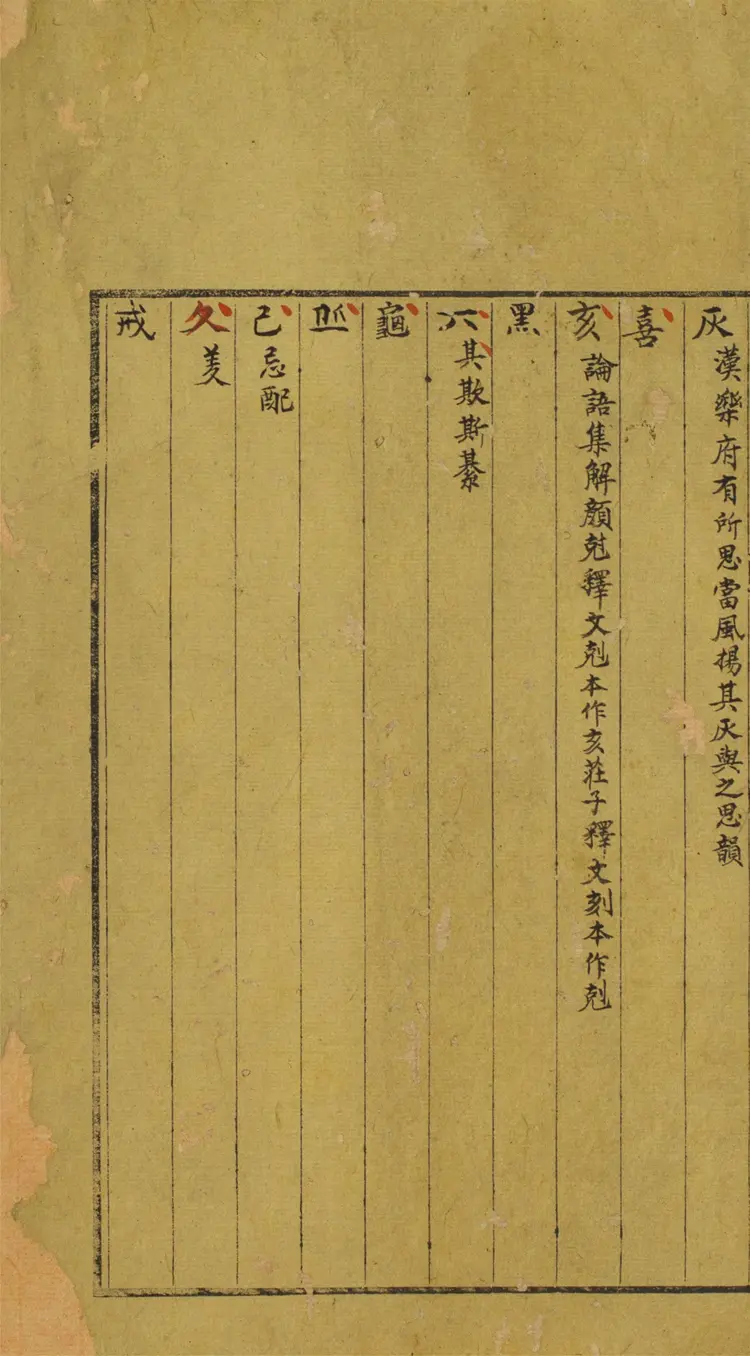 灰 漢樂府有所思當風揚其灰與之思韻
喜
亥 論語集解顏兙釋文剋本作亥莊子釋文刻本作剋
黑
丌 其欺斯綦
龜
己 忌配
久 羑
戒